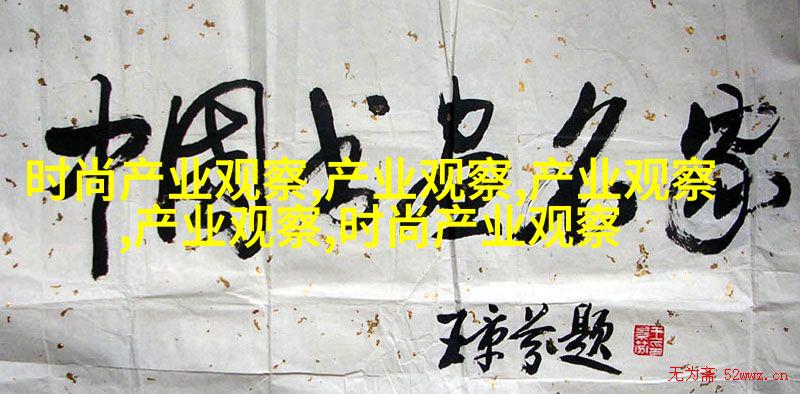 中国书画名家
时尚产业观察,产业观察,产业观察
,产业观察,时尚产业观察
王京芬题
无为斋 52wwz.cn